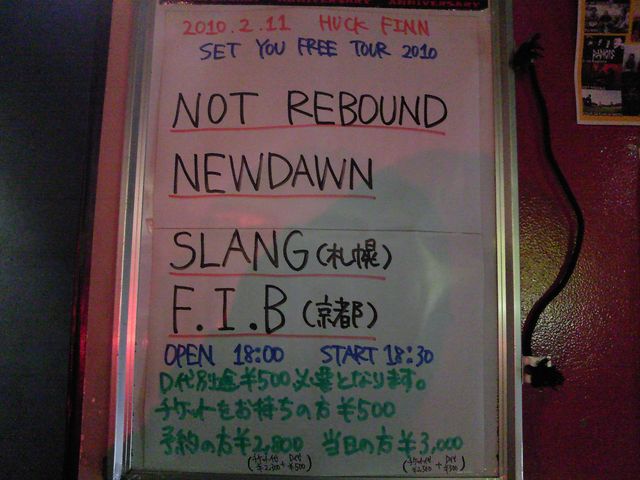 ANNIVERSARY
2010.2.11 HUCK FINN
SET YOU FREE TOUR 2010
NOT REBOUND
NEWDAWN
SLANG (札幌)
F.I.B (京都)
OPEN 18:00 START 18:30
D代別途¥500必要となります。
チケットをお持ちの方¥500
予約の方¥2,800 当日の方¥3,000
(チケット代 ¥2,300 + D代 ¥500)